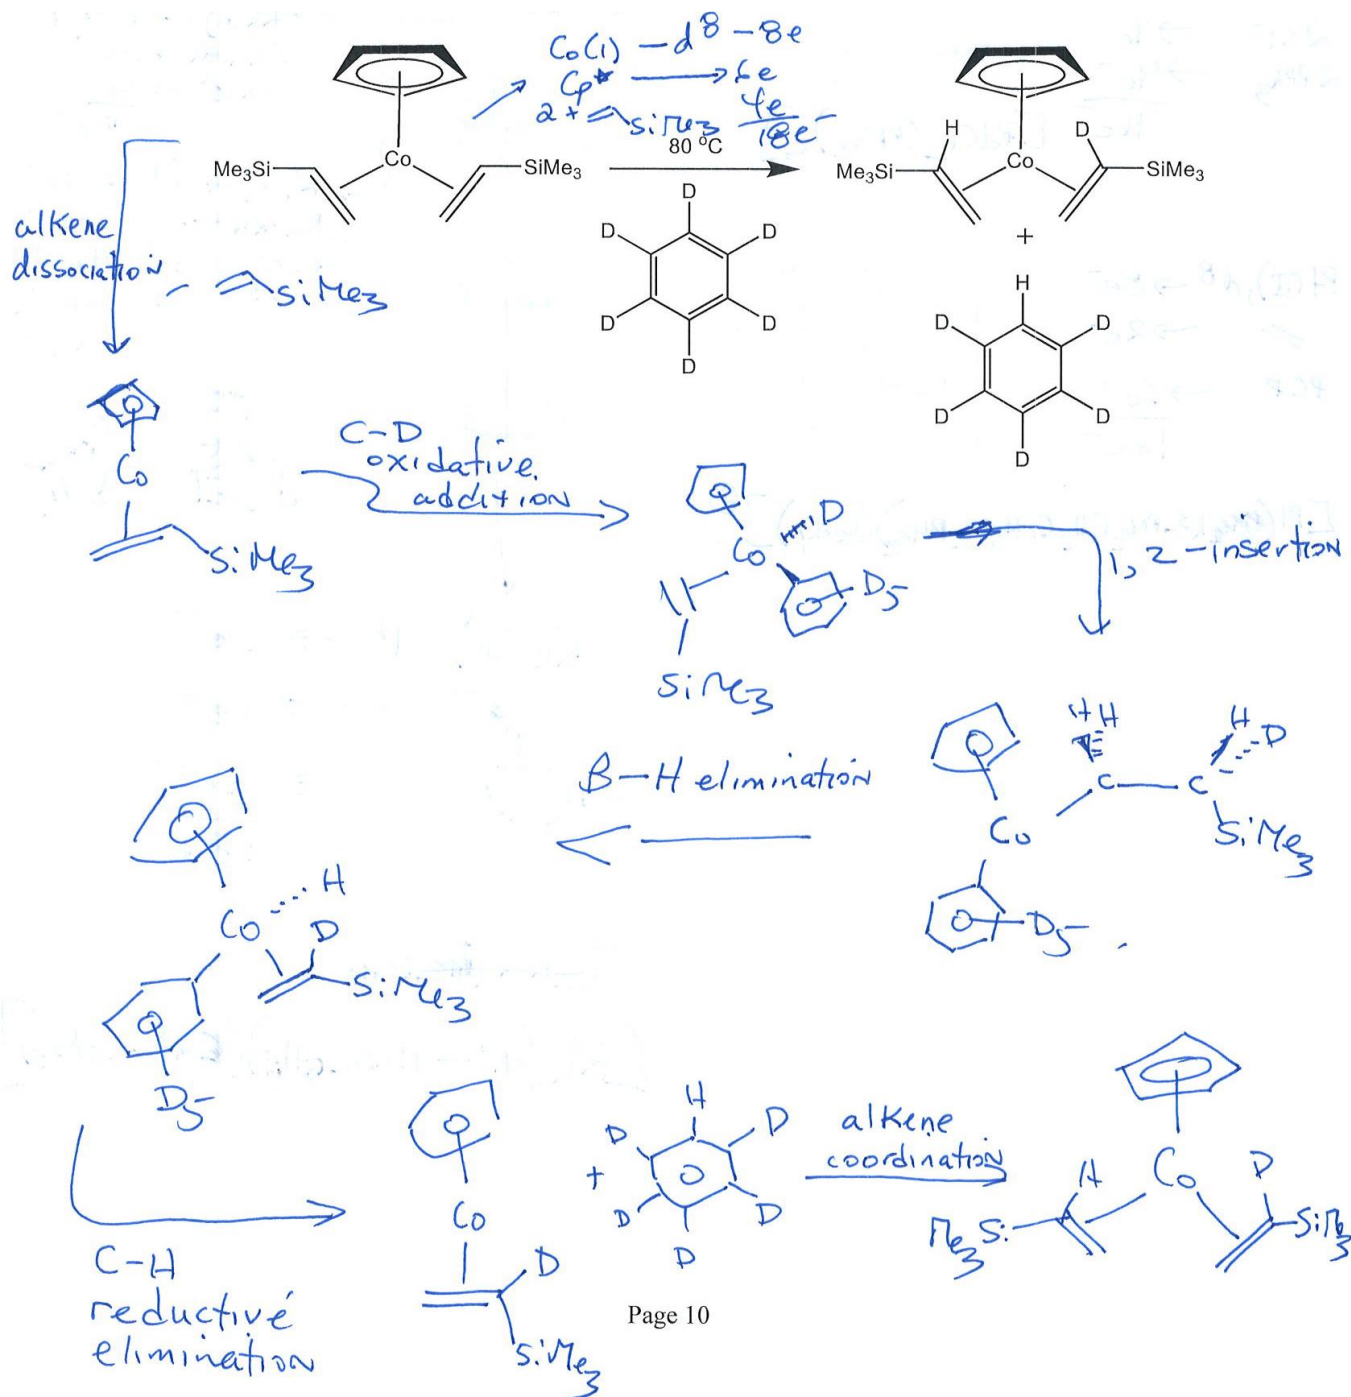 Co(I) – d⁸ – 8e
Cp* → 6e
2 × SiMe₃ 4e
18e⁻
80 °C
Me₃Si
Co
SiMe₃
H
D
Me₃Si
Co
SiMe₃
+
D
D
D
D
D
D
H
D
D
D
D
D
alkene
dissociation
– SiMe₃
Co
SiMe₃
C–D
oxidative
addition
D
Co
D₅
SiMe₃
1,2-insertion
H H
H
D
C – C
Co
SiMe₃
D₅
β–H elimination
H
Co
D
SiMe₃
D₅
C–H
reductive
elimination
Co
D
SiMe₃
+
H
D
D
D
D
D
alkene
coordination
Co
H
D
Me₃Si
SiMe₃
Page 10